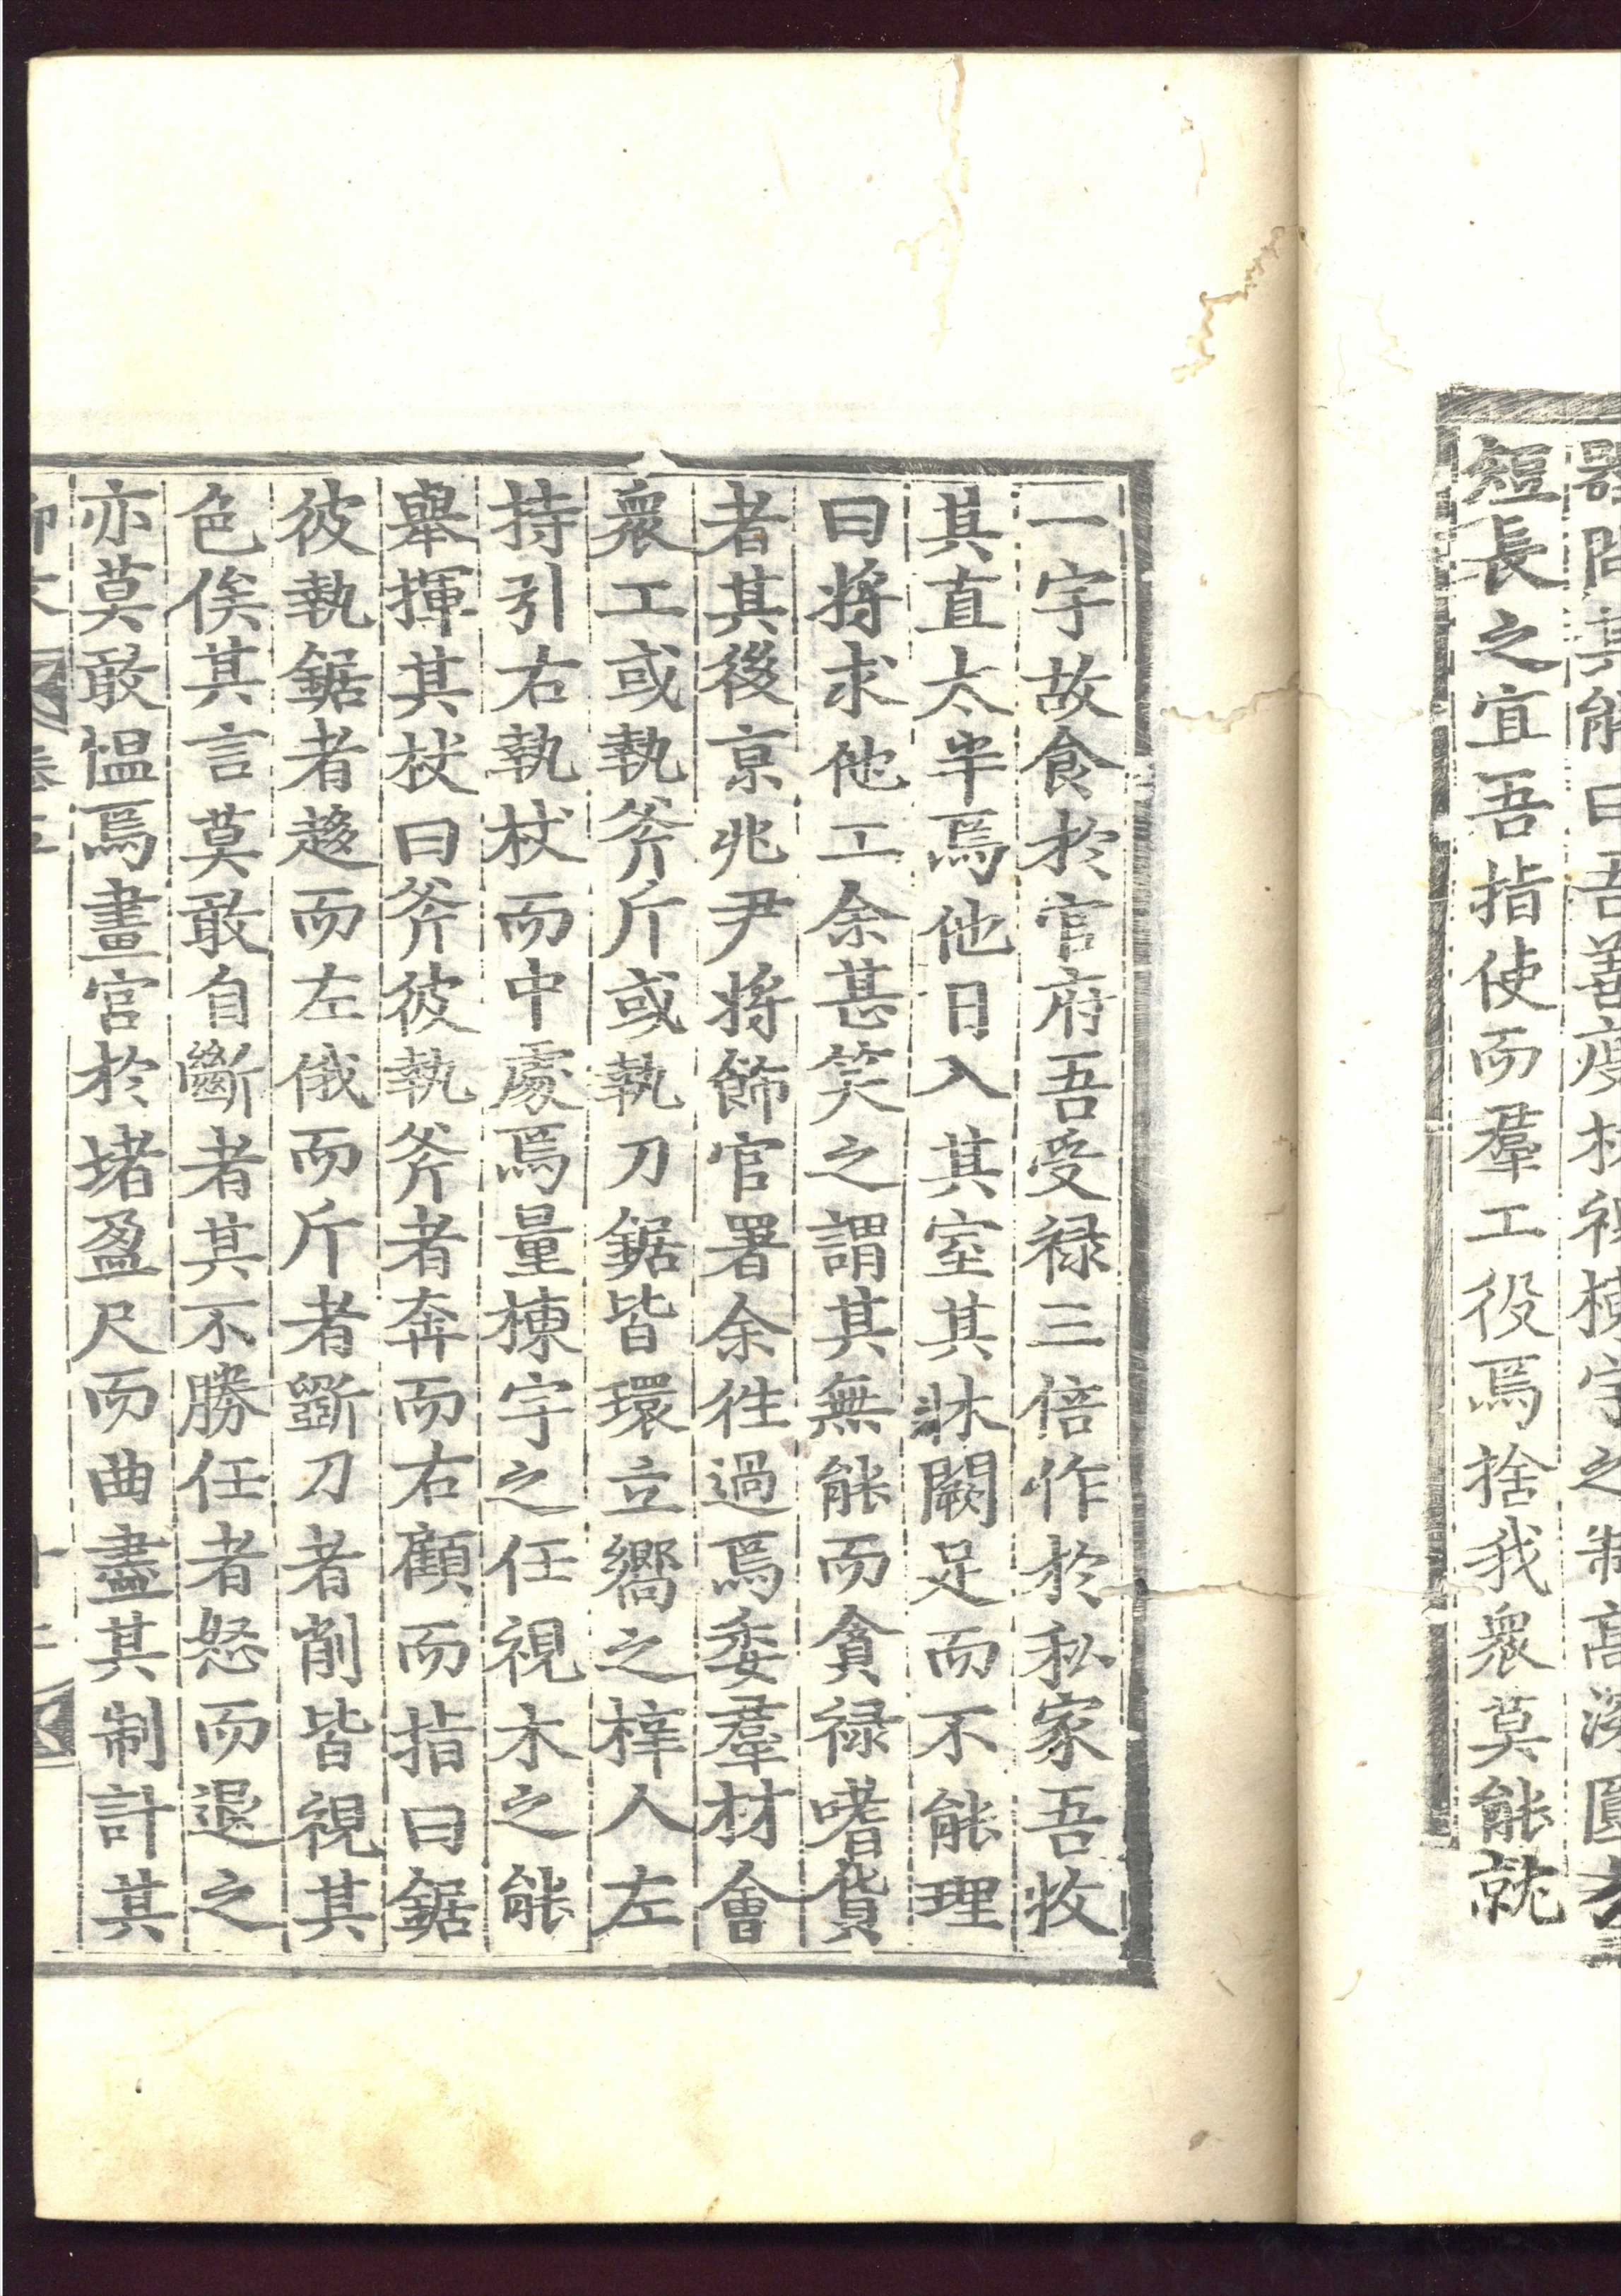 短長之宜吾指使而羣工役焉捨我衆莫能就
一宇故食於官府吾受禄三倍作於私家吾收
其直太半焉他日入其室其牀闕足而不能理
曰將求他工余甚笑之謂其無能而貪禄嗜貨
者其後京兆尹將飾官署余徃過焉委羣材會
衆工或執斧斤或執刀鋸皆環立嚮之梓人左
持引右執杖而中處焉量棟宇之任視木之能
舉揮其杖曰斧彼執斧者奔而右顧而指曰鋸
彼執鋸者趍而左俄而斤者斲刀者削皆視其
色俟其言莫敢自斷者其不勝任者怒而退之
亦莫敢慍焉畫宮於堵盈尺而曲盡其制計其